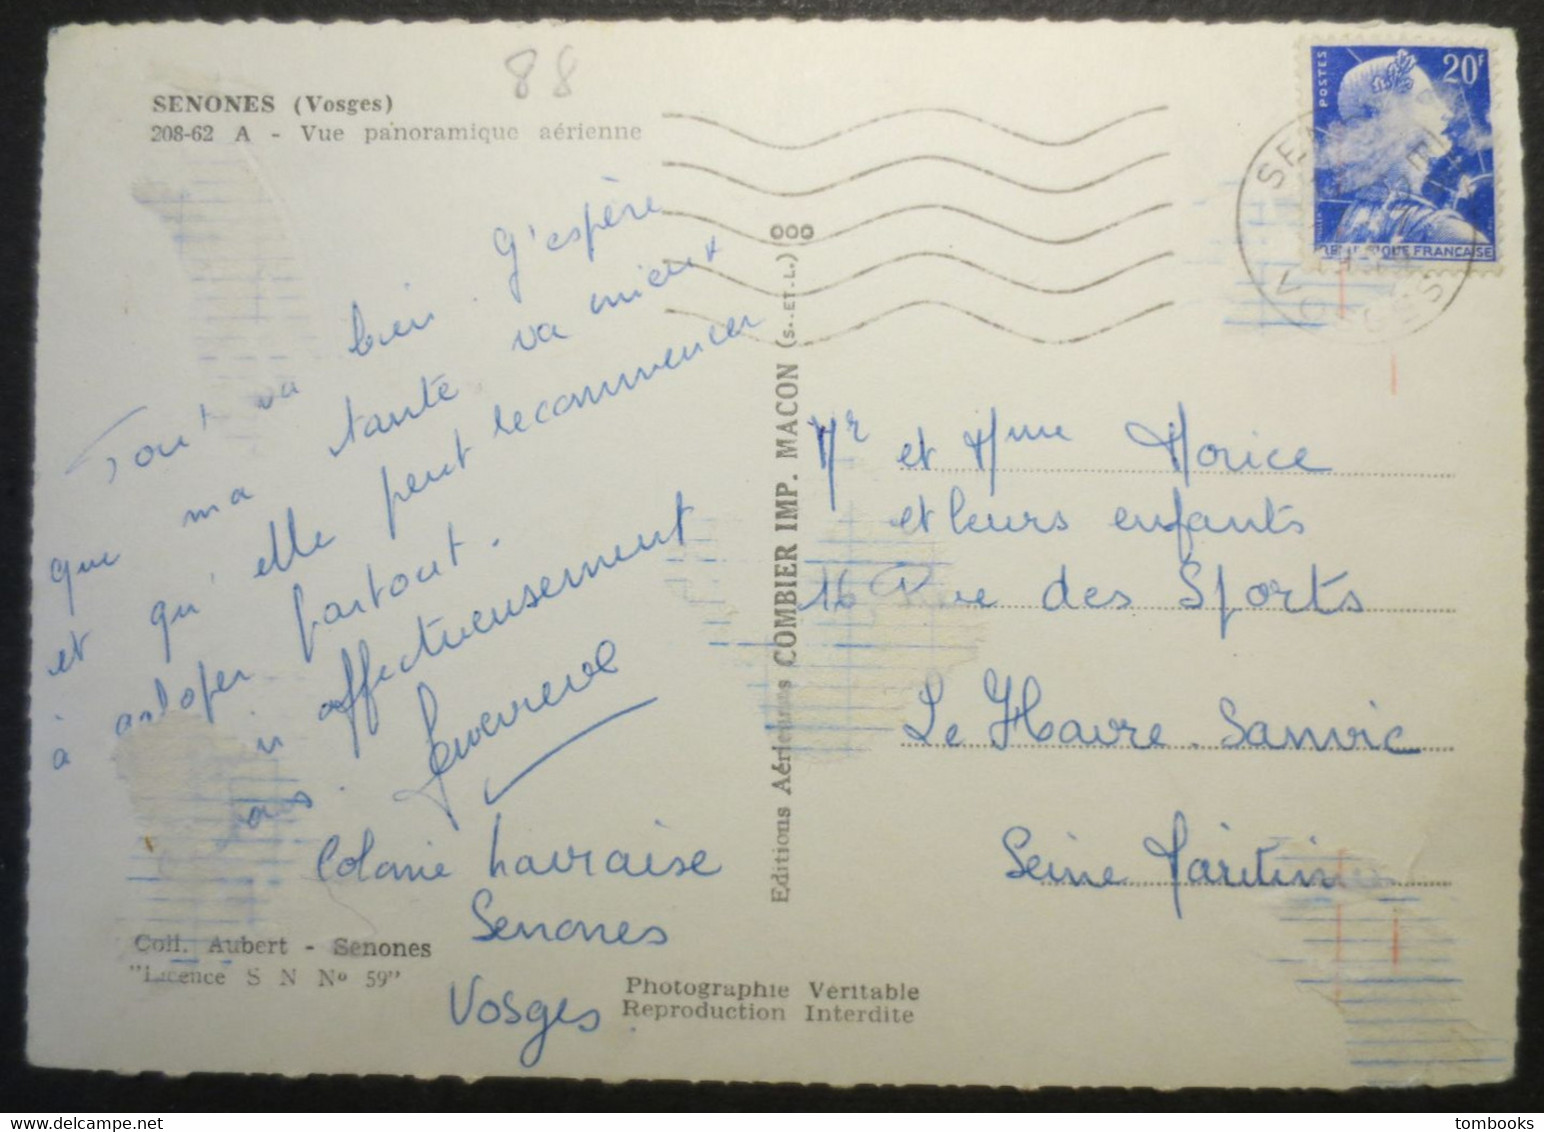 88
SENONES (Vosges)
208-62 A - Vue panoramique aérienne
Tout va bien. J'espère
que ma tante va mieux
et qu'elle peut recommencer
à galoper partout.
affectueusement
Colonie havraise
Senones
Vosges.
Coll. Aubert - Senones
"Licence S N No 59"
Photographie Véritable
Reproduction Interdite
Editions Aériennes COMBIER IMP. MACON (S.-ET-L.) 000
POSTES
20F
REPUBLIQUE FRANÇAISE
VOSGES
Mr et Mme Morice
et leurs enfants
16 Rue des Sports
Le Havre. Sanvic
Seine Maritime
tombooks